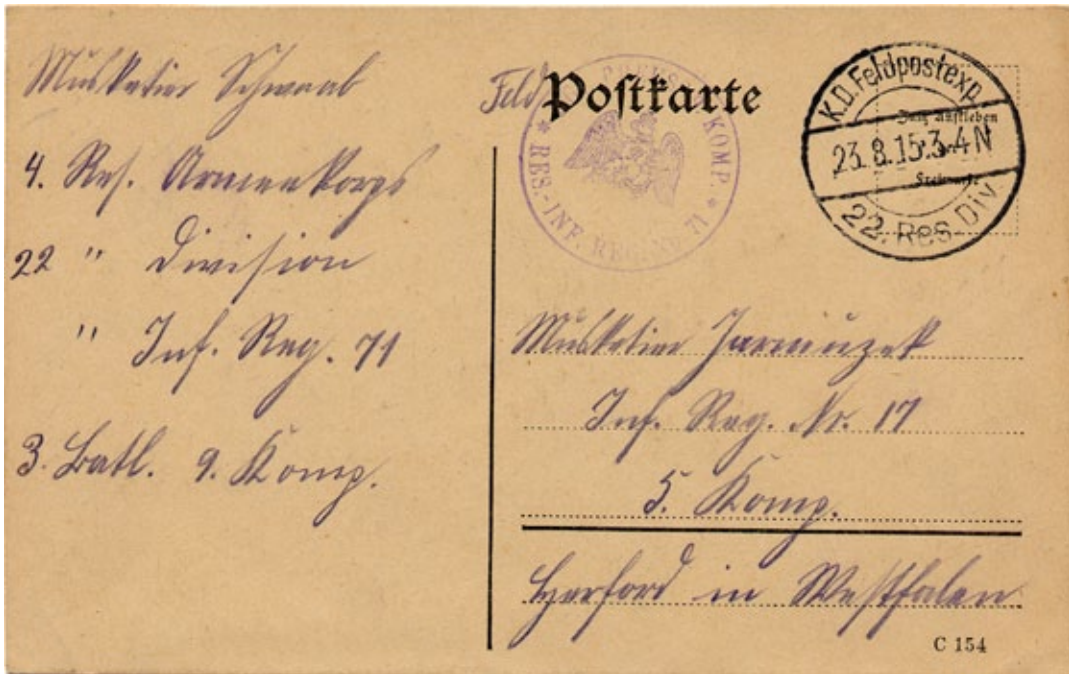 Musketier Schwaab
4. Res. Armeekorps
22 " Division
" Inf. Reg. 71
3. Batl. 9. Komp.
Feld Postkarte
KOMP. * RES.-INF. REG. Nr. 71 *
K.D. Feldpostexp.
23.8.15.3-4N
22. Res. Div.
Zum Aufkleben
der
Freimarke
Musketier Jarmuzek
Inf. Reg. Nr. 17
5. Komp.
Herford in Westfalen
C 154